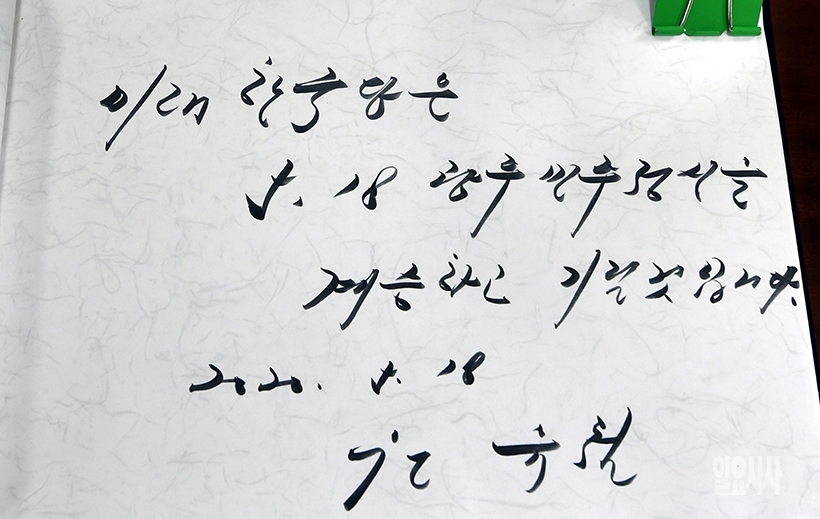 미래 한국당은
5. 18 광주 민주정신을
계승하고 기릴것입니다.
2020. 5. 18
원 유철
일요시사